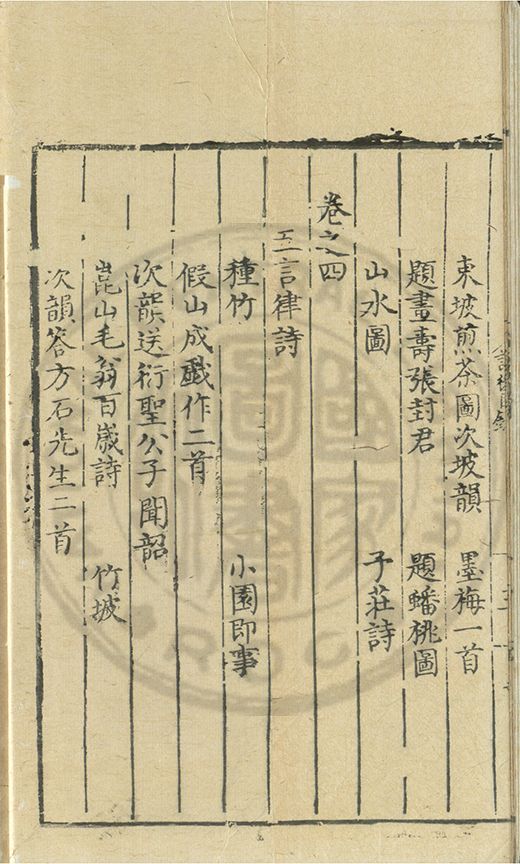 東坡煎茶圖次坡韻　墨梅一首
題畫壽張封君　題蟠桃圖
山水圖　子莊詩
卷之四
五言律詩
種竹　小園即事
假山成戲作二首
次韻送衍聖公子聞韶
崑山毛翁百歲詩　竹坡
次韻答方石先生二首